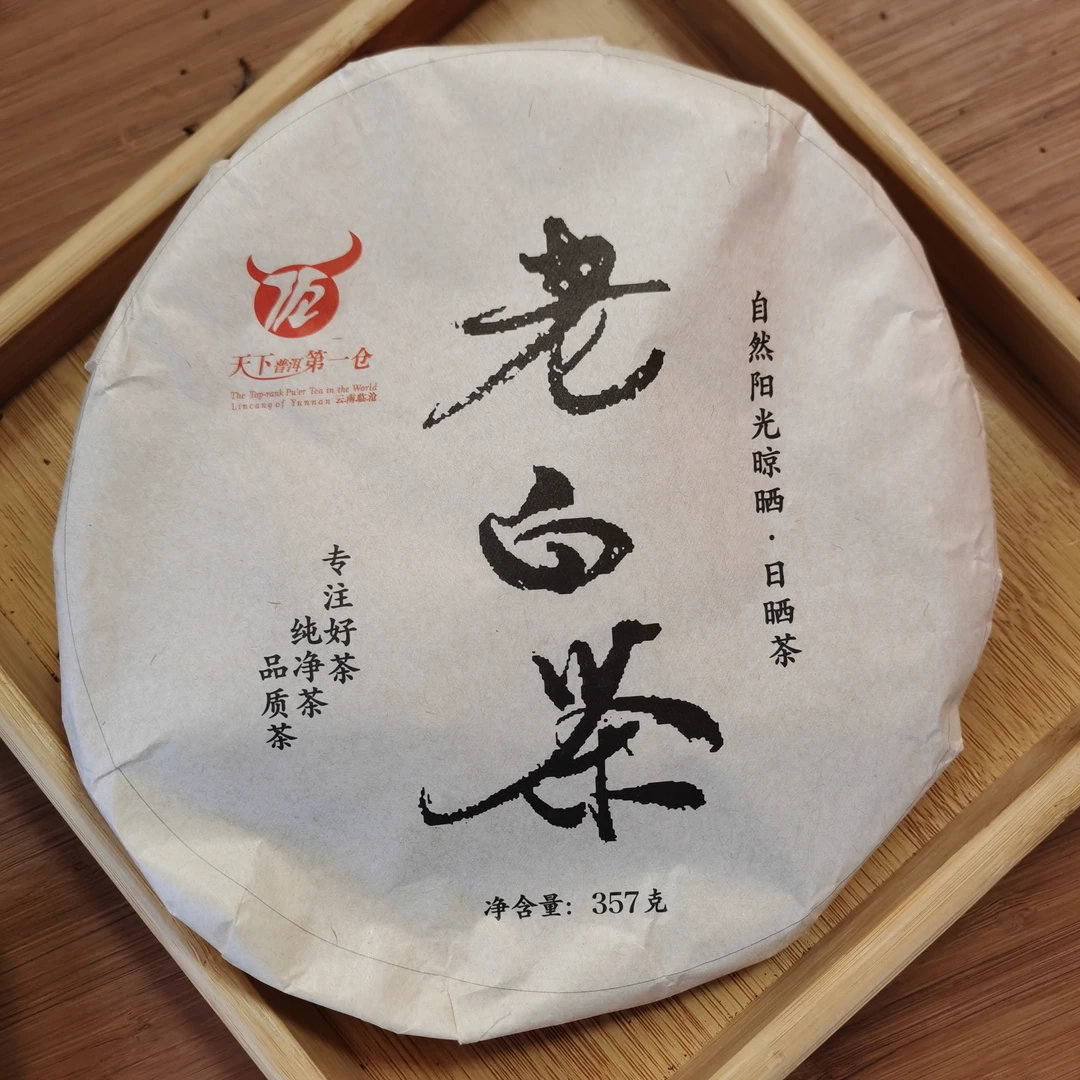 天下普洱第一仓
The Top-rank Pu'er Tea in the World
Lincang of Yunnan 云南临沧
老白茶
自然阳光晾晒·日晒茶
专注好茶
纯净茶
品质茶
净含量：357克